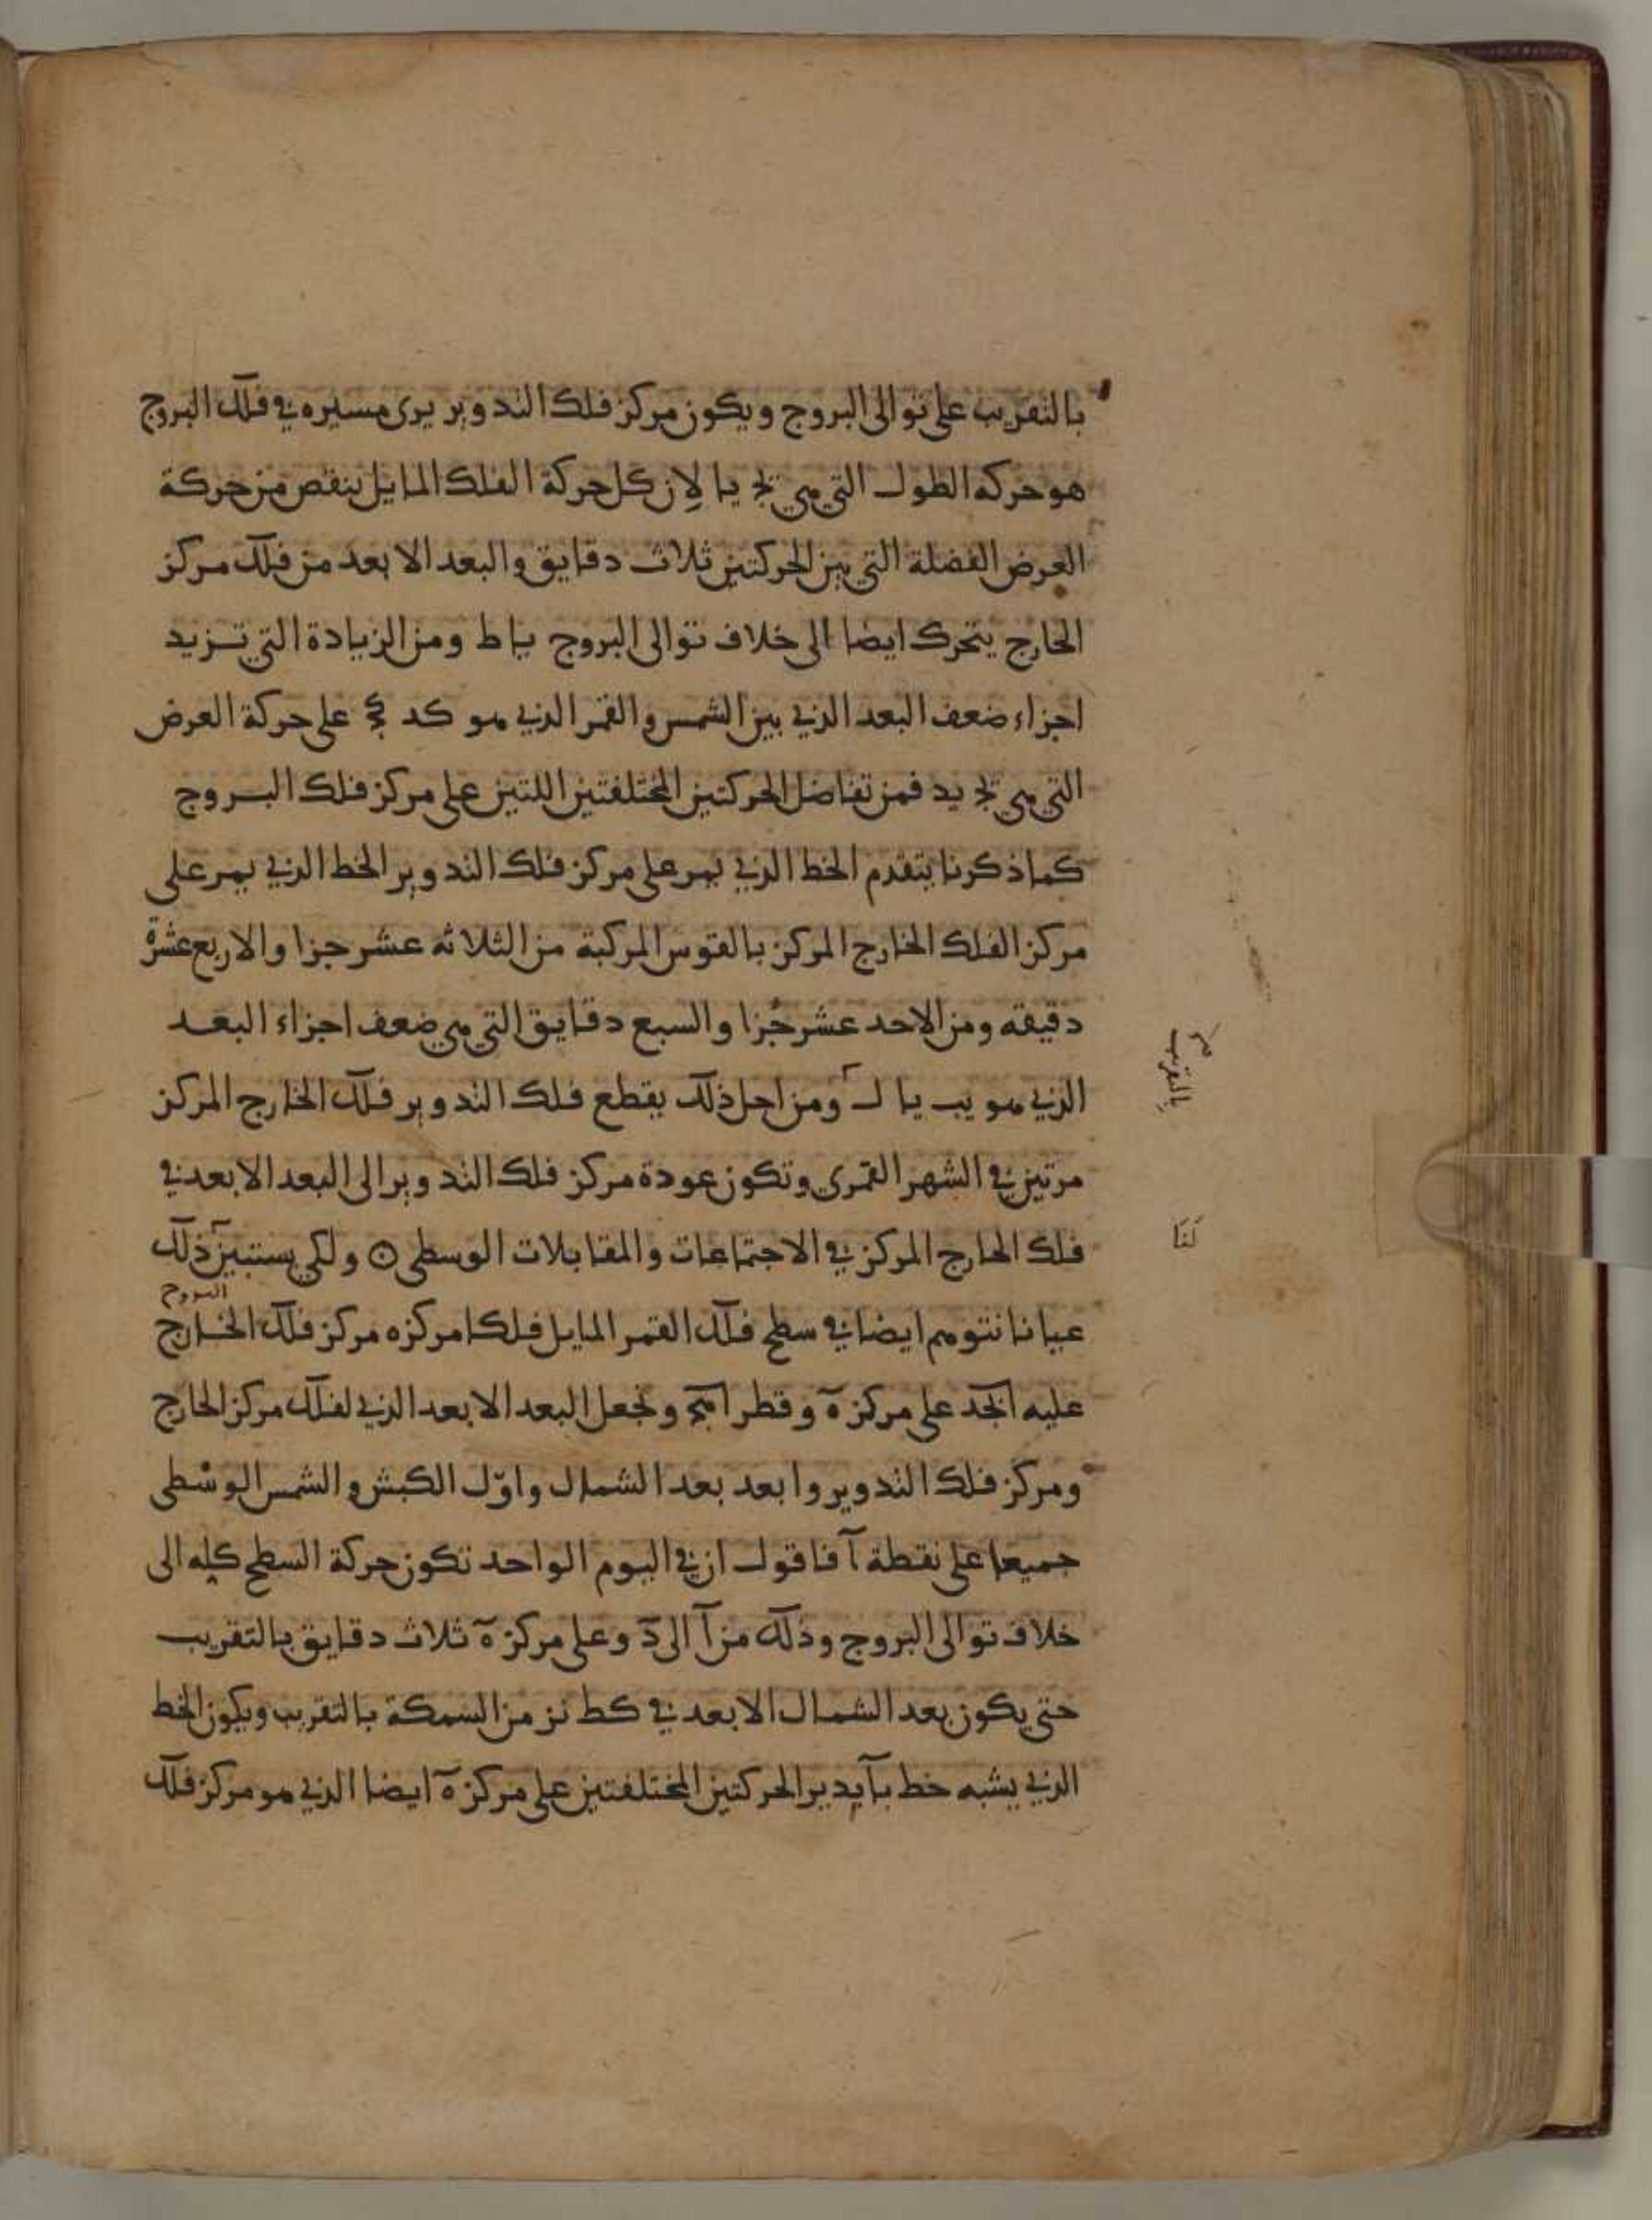 بالتقريب على توالى البروج ويكون مركز فلك التدوير يرى مسيره في فلك البروج
هو حركه الطول التي هي يج يا لان كل حركة الفلك المايل ينقص من حركة
العرض الفضلة التي بين الحركتين ثلاث دقايق والبعد الابعد من فلك مركز
الخارج يتحرك ايضا الى خلاف توالى البروج يا ط ومن الزيادة التي تزيد
اجزاء ضعف البعد الذي بين الشمس والقمر الذي هو كد كج على حركة العرض
التي هي يج يد فمن تفاضل الحركتين المختلفتين اللتين على مركز فلك البروج
كما ذكرنا يتقدم الخط الذي يمر على مركز فلك التدوير الخط الذي يمر على
مركز الفلك الخارج المركز بالقوس المركبة من الثلاثه عشر جزا والاربع عشرة
دقيقه ومن الاحد عشر جزا والسبع دقايق التي هي ضعف اجزاء البعد
الذي هو يب يا ل ومن اجل ذلك يقطع فلك التدوير فلك الخارج المركز
بالتقريب
مرتين في الشهر القمري وتكون عودة مركز فلك التدوير الى البعد الابعد في
فلك الخارج المركز في الاجتماعات والمقابلات الوسطى ولكي يستبين ذلك
لنا
البروج
عيانا نتوهم ايضا في سطح فلك القمر المايل فلكا مركزه مركز فلك الخارج
عليه ابجد على مركز ه وقطر اهج ونجعل البعد الابعد الذي لفلك مركز الخارج
ومركز فلك التدوير وابعد بعد الشمال واول الكبش والشمس الوسطى
جميعا على نقطة ا فاقول ان في اليوم الواحد تكون حركة السطح كله الى
خلاف توالى البروج وذلك من ا الى د وعلى مركز ه ثلاث دقايق بالتقريب
حتى يكون بعد الشمال الابعد في كط نز من السمكة بالتقريب ويكون الخط
الذي يشبه خط يدير الحركتين المختلفتين على مركز ه ايضا الذي هو مركز فلك